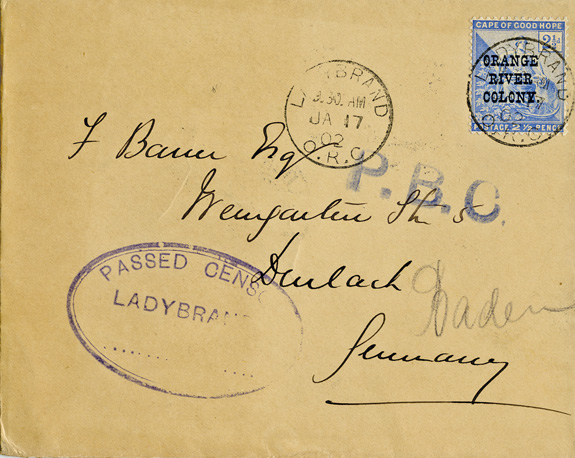 CAPE OF GOOD HOPE
2½d
ORANGE
RIVER
COLONY.
POSTAGE 2½ PENCE
LADYBRAND
O.R.C
LADYBRAND
9.30. AM
JA 17
02
O.R.C
F Bauer Esq
P.B.C.
Weingarten Str 5
Durlach
Baden
Germany
PASSED CENSO
LADYBRAN